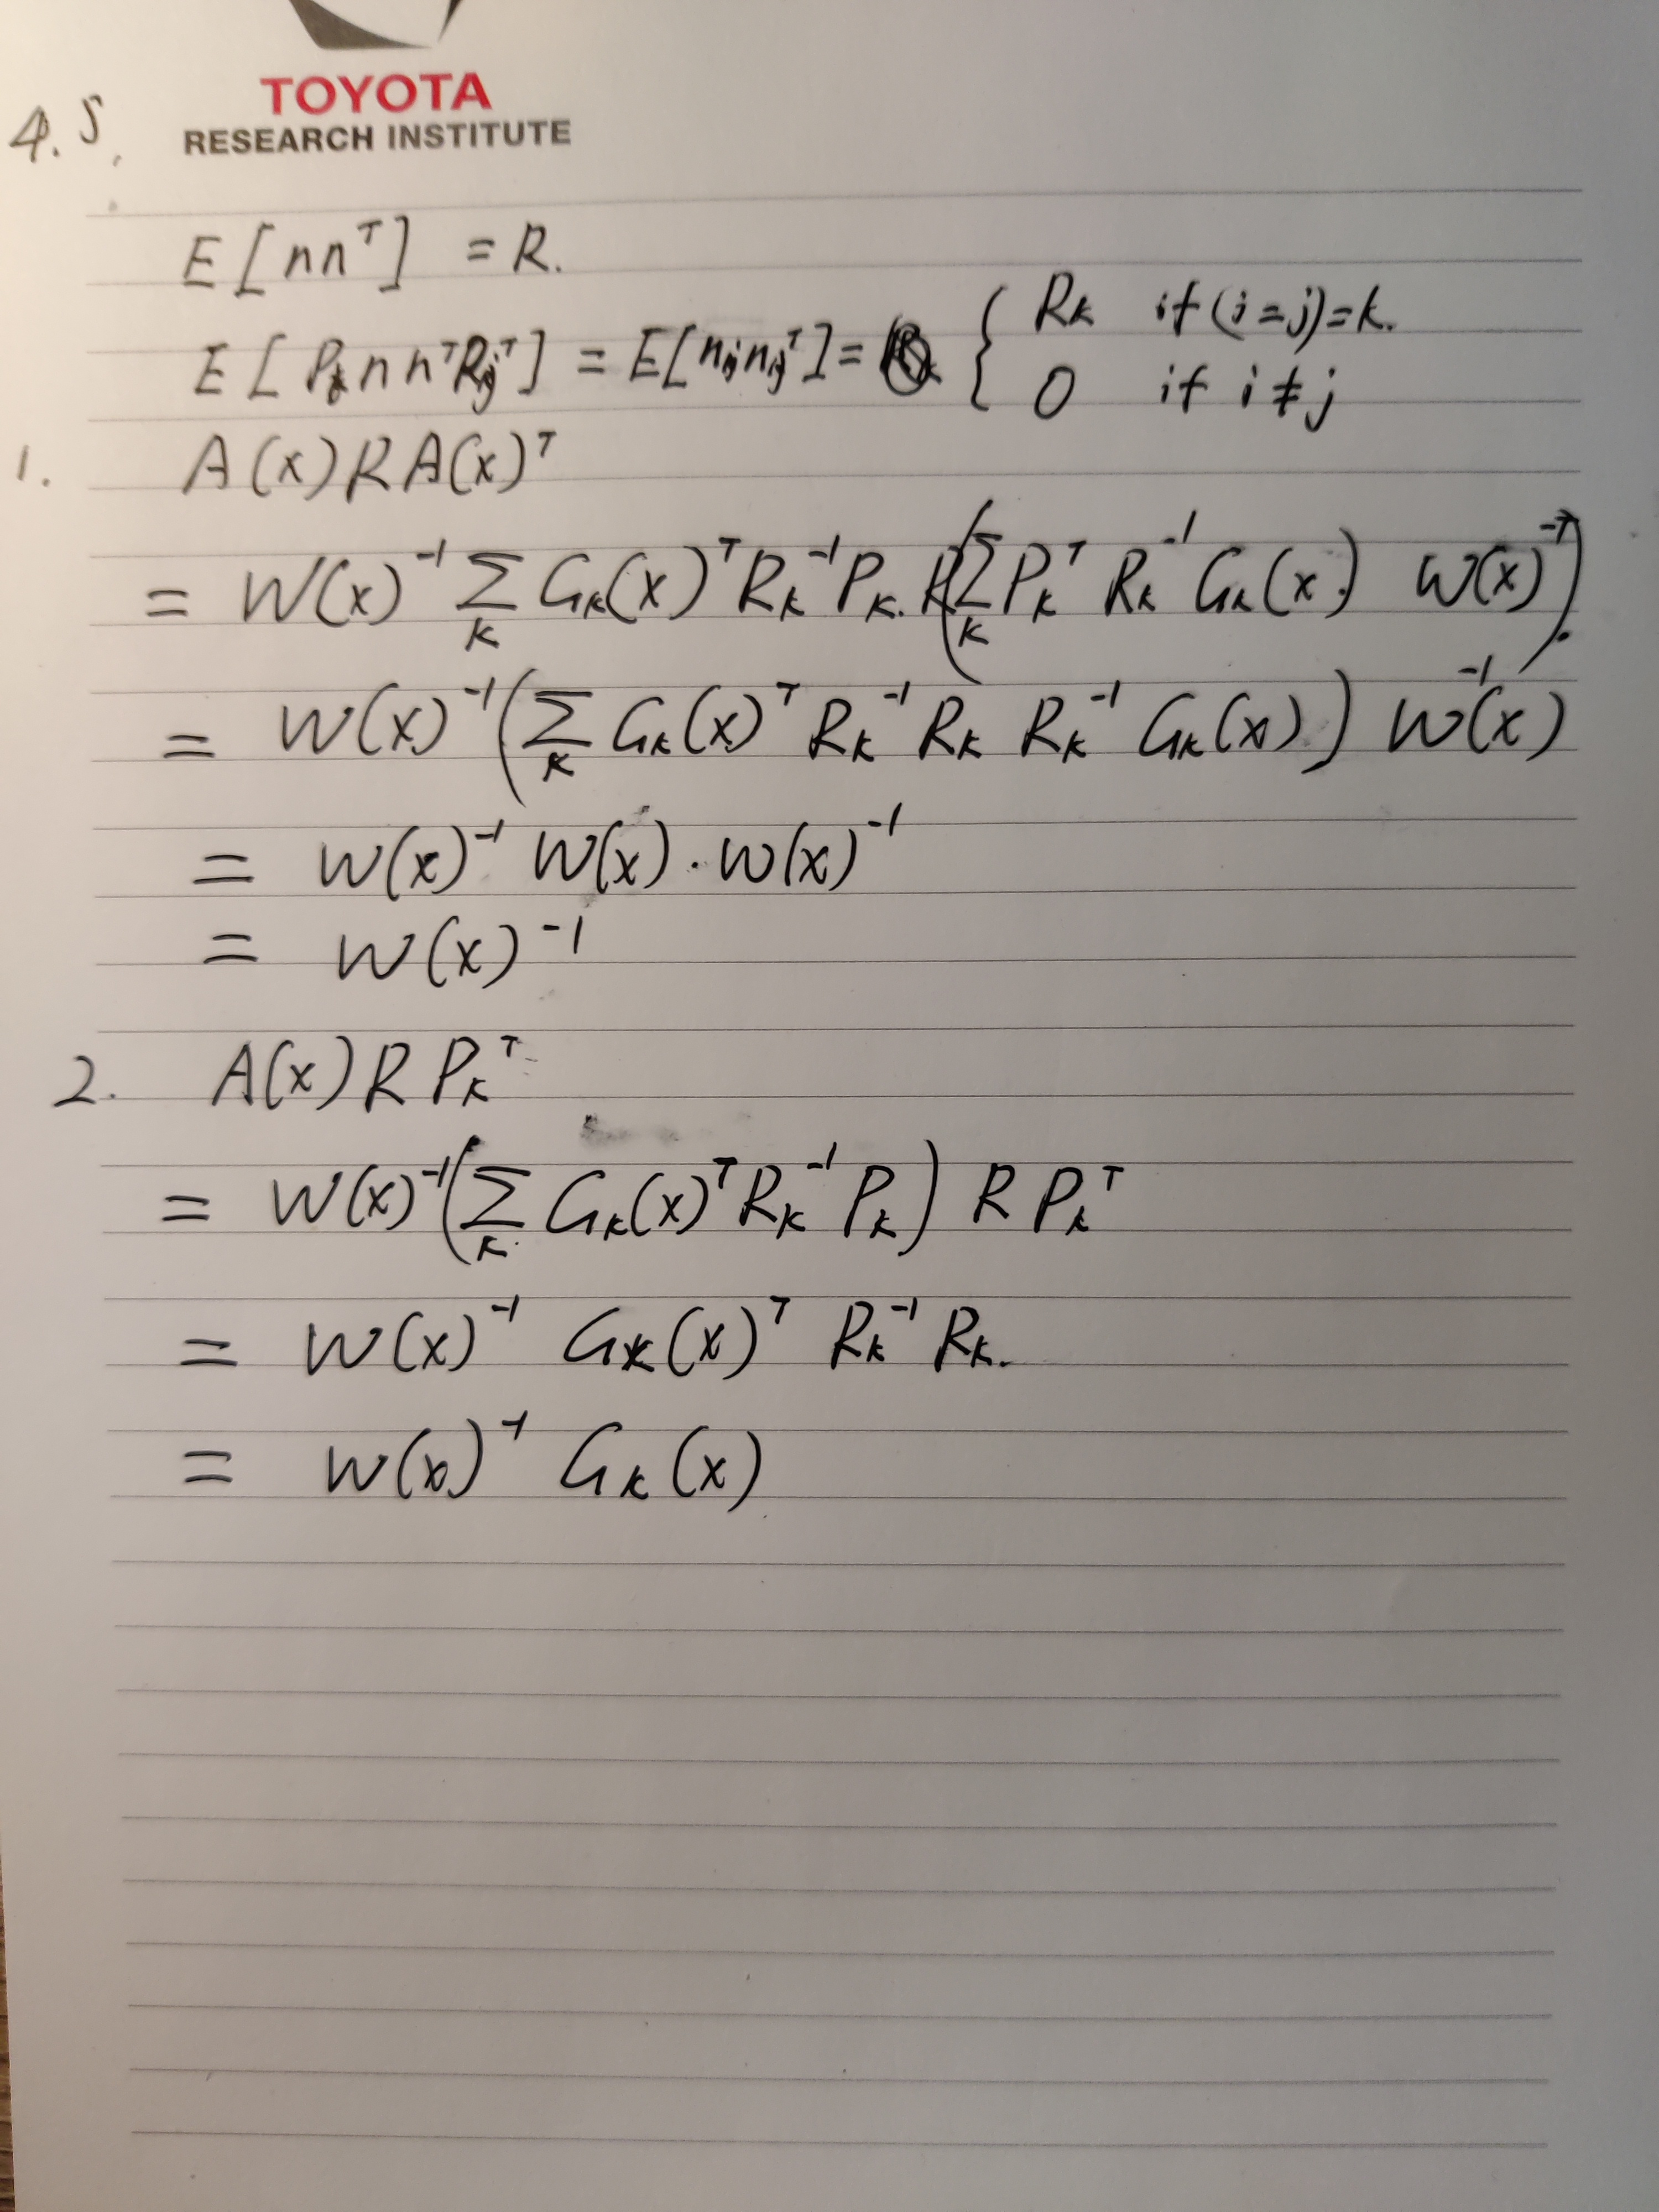 TOYOTA
4.5. RESEARCH INSTITUTE
E[nnᵀ] = R.
E[Pᵢ n nᵀ Pⱼᵀ] = E[nᵢnⱼᵀ] = { Rₖ if (i=j)=k.
0 if i≠j
1. A(x)RA(x)ᵀ
= W(x)⁻¹ Σₖ Gₖ(x)ᵀRₖ⁻¹Pₖ. R(Σₖ Pₖᵀ Rₖ⁻¹ Gₖ(x) W(x)⁻ᵀ).
= W(x)⁻¹(Σₖ Gₖ(x)ᵀ Rₖ⁻¹ Rₖ Rₖ⁻¹ Gₖ(x)) W⁻¹(x)
= W(x)⁻¹ W(x) · W(x)⁻¹
= W(x)⁻¹
2. A(x)R Pₖᵀ
= W(x)⁻¹(Σₖ Gₖ(x)ᵀRₖ⁻¹Pₖ) R Pₖᵀ
= W(x)⁻¹ Gₖ(x)ᵀ Rₖ⁻¹ Rₖ.
= W(x)⁻¹ Gₖ(x)